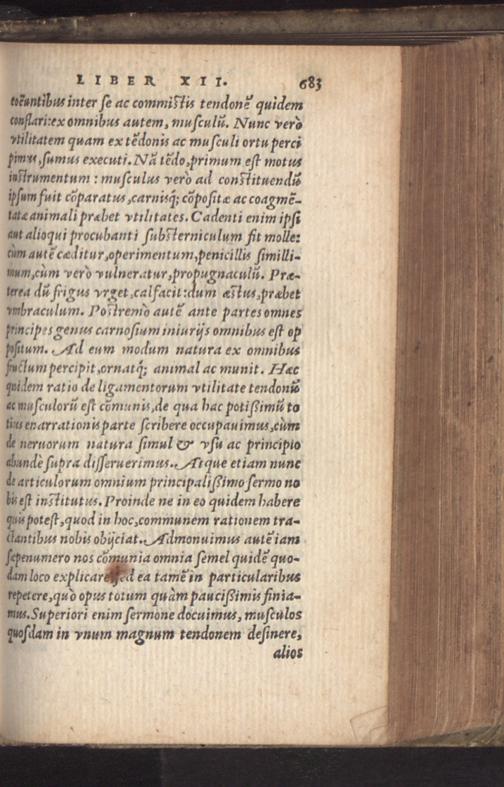 LIBER XII. 683
toeuntibus inter se ac commistis tendonē quidem
conflari: ex omnibus autem, musculū. Nunc verò
vtilitatem quam ex tēdonis ac musculi ortu perci
pimus, sumus executi. Nā tēdo, primum est motus
instrumentum: musculus verò ad constituendū
ipsum fuit cōparatus, carnisq; cōpositæ ac coagmē-
tatæ animali præbet vtilitates. Cadenti enim ipsi
aut alioqui procubanti substerniculum fit molle:
cùm autē cæditur, operimentum, penicillis simlli-
mum, cùm verò vulneratur, propugnaculū. Præ-
terea dū frigus vrget, calfacit: dum æstus, præbet
vmbraculum. Postremò autē ante partes omnes
principes genus carnosium iniurijs omnibus est op
positum. Ad eum modum natura ex omnibus
fructum percipit, ornatq; animal ac munit. Hæc
quidem ratio de ligamentorum vtilitate tendonū
ac musculorū est cōmunis, de qua hac potißimū to
tius enarrationis parte scribere occupauimus, cùm
de neruorum natura simul & vsu ac principio
abundè supra disseruerimus. Atque etiam nunc
de articulorum omnium principalißimo sermo no
bis est institutus. Proinde ne in eo quidem habere
quis potest, quod in hoc, communem rationem tra-
ctantibus nobis obijciat. Admonuimus autē iam
sæpenumero nos cōmunia omnia semel quidē quo-
dam loco explicare, sed ea tamē in particularibus
repetere, quò opus totum quàm paucißimis finia-
mus. Superiori enim sermone docuimus, musculos
quosdam in vnum magnum tendonem desinere,
alios